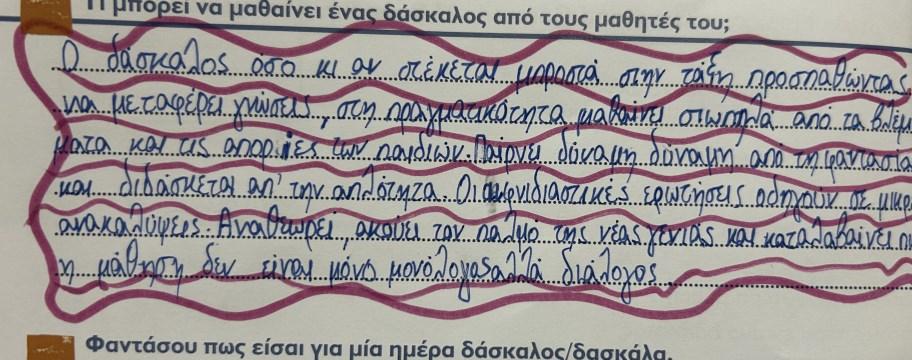 Τι μπορεί να μαθαίνει ένας δάσκαλος από τους μαθητές του;
Ο δάσκαλος όσο κι αν στέκεται μπροστά στην τάξη προσπαθώντας
να μεταφέρει γνώσεις, στη πραγματικότητα μαθαίνει σιωπηλά από τα βλέμ
ματα και τις απορίες των παιδιών. Παίρνει δύναμη δύναμη από τη φαντασία
και διδάσκεται απ' την απλότητα. Οι αιφνιδιαστικές ερωτήσεις οδηγούν σε μικρ
ανακαλύψεις. Αναθεωρεί, ακούει τον παλμό της νέας γενιάς και καταλαβαίνει
η μάθηση δεν είναι μόνο μονόλογος αλλά διάλογος
Φαντάσου πως είσαι για μία ημέρα δάσκαλος/δασκάλα.